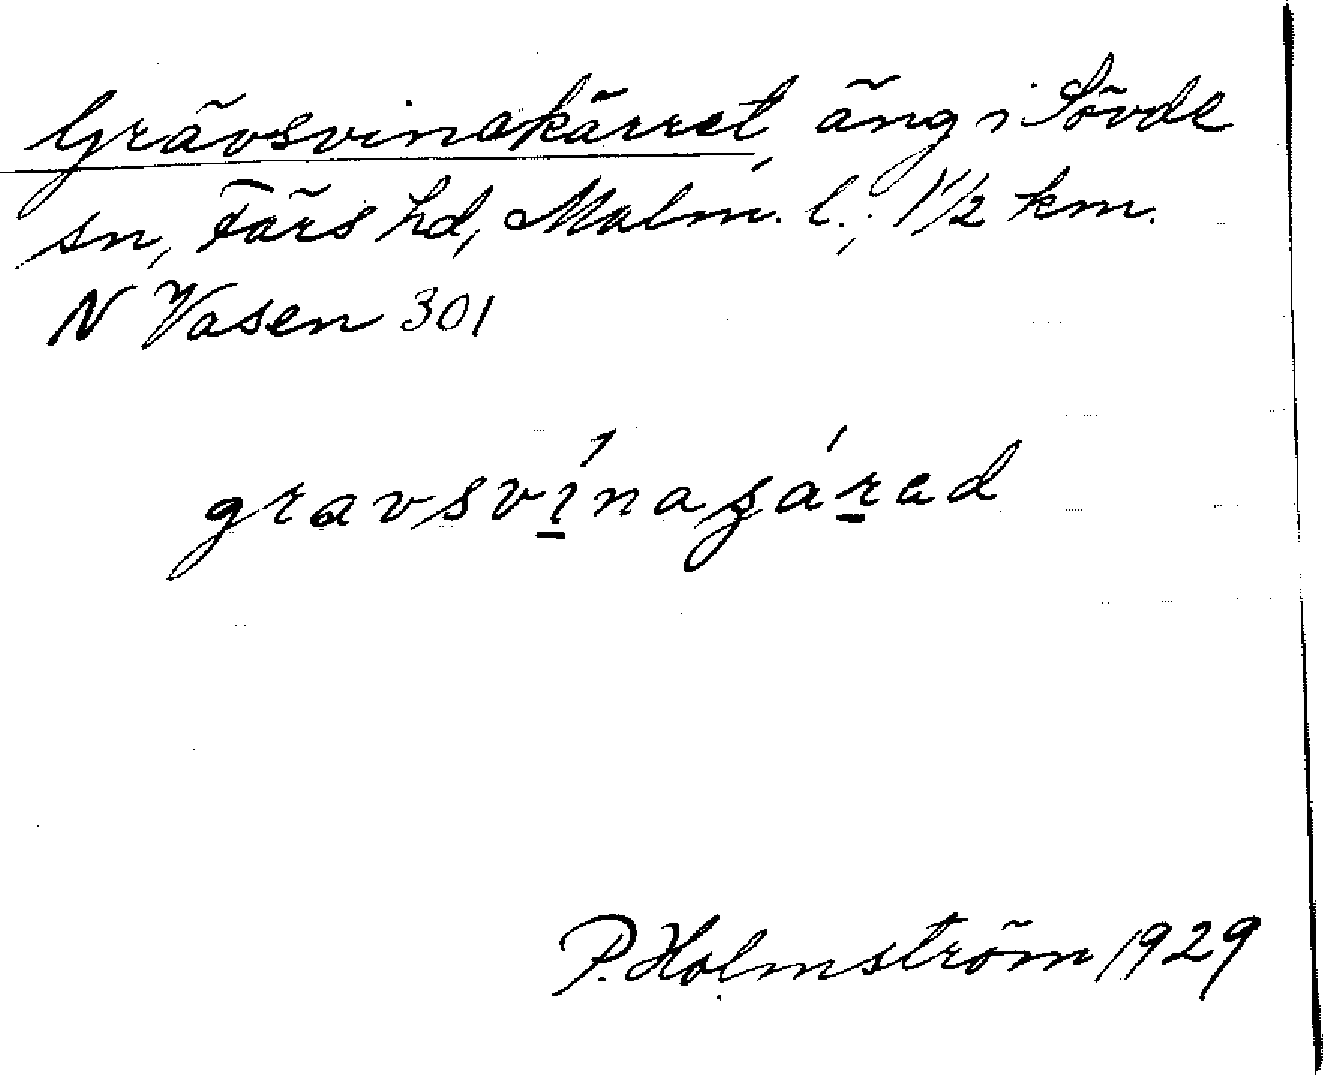 Grävsvinakärret, äng i Sövde
sn, Färs hd, Malm. l., 1 1/2 km.
N Vasen 301
gravsvínagárad
P. Holmström 1929